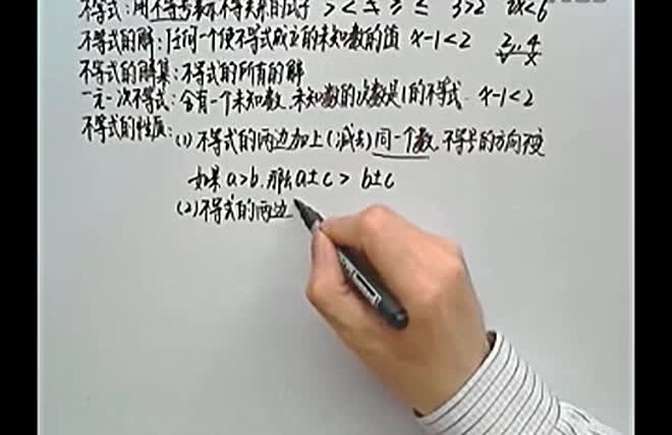 不等式:用不等号表示不等关系的式子 > < ≠ ≥ ≤ 3>2 2x<6
不等式的解:任何一个使不等式成立的未知数的值 x-1<2
不等式的解集:不等式的所有的解
一元一次不等式:含有一个未知数,未知数的次数是1的不等式. x-1<2
不等式的性质:(1)不等式的两边加上(减去)同一个数,不等号的方向不变
如果a>b,那么a±c > b±c
(2)不等式的两边